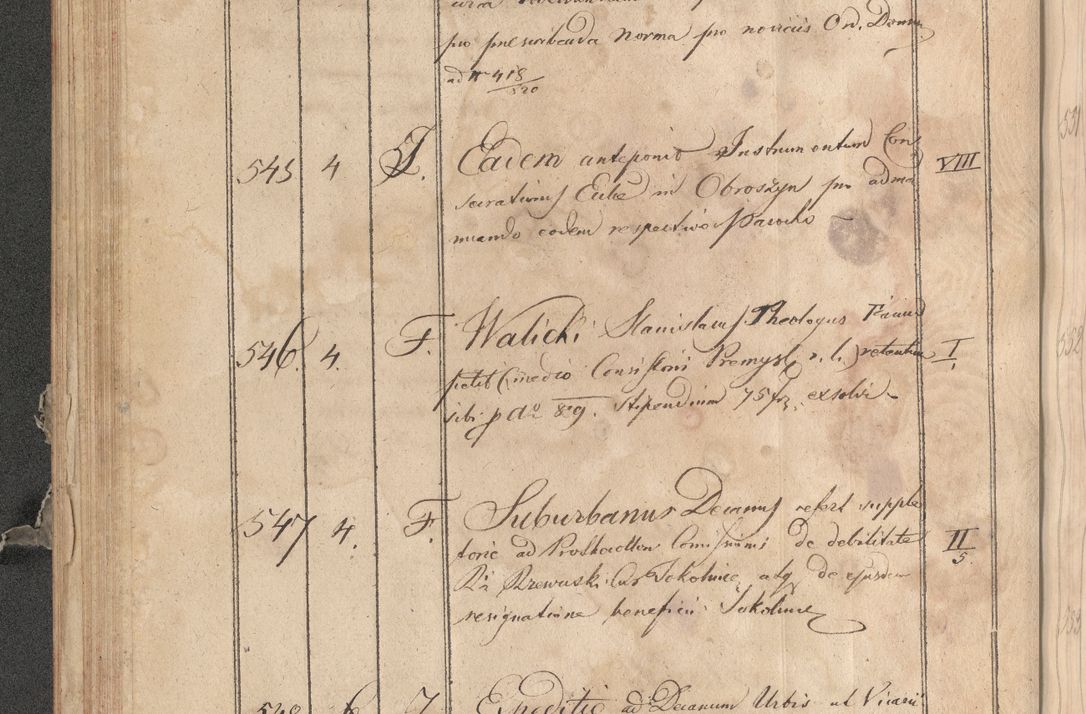 pro praescribenda Norma pro noviciis Ord. Domin
ad Nr 418/520
545 4 J. Eadem anteponit Instrumentum Con VIII
secrationis Eccl̄e in Obroszyn pro adma
nuando eodem respective Parocho
546. 4. F. Walicki Stanislaus Theologus I
petit (medio Consistorii Premysl r. l.) retentum
sibi p Aº 819. stipendium 75 fr. exsolvi
547 4. F. Suburbanus Decanus refert supple II
torie ad Commissionis de debilitate 5.
Rzewuski Cur Sokolnice, atq de ejusdem
resignatione beneficii Sokolnice
548 6 J. Expeditio ad Decanum Urbis ut Vicarii
531
532
533